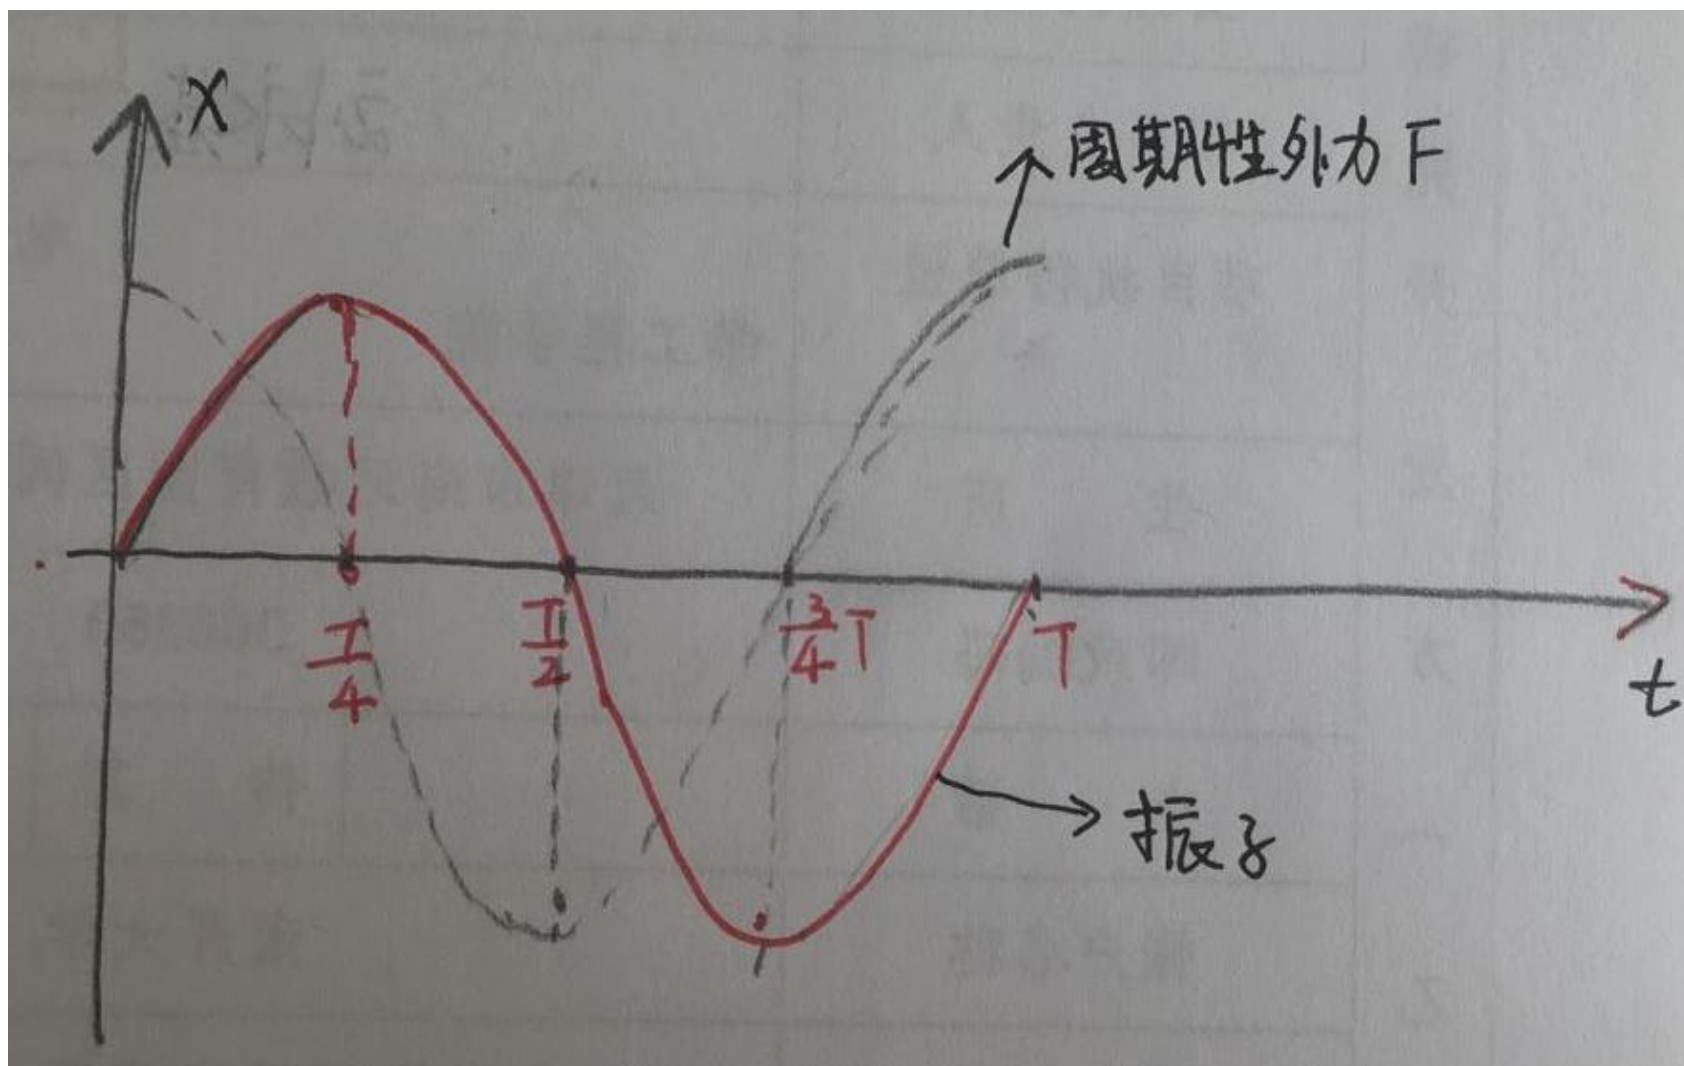 X
周期性外力 F
T/4
T/2
3/4 T
T
t
振子